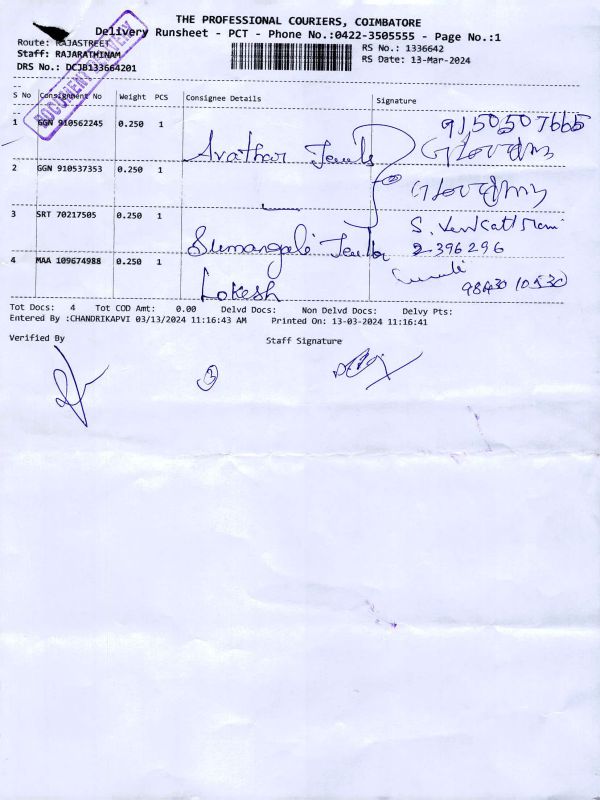 THE PROFESSIONAL COURIERS, COIMBATORE
Delivery Runsheet - PCT - Phone No.:0422-3505555 - Page No.:1
Route: RAJASTREET
RS No.: 1336642
Staff: RAJARATHINAM
RS Date: 13-Mar-2024
DRS No.: DCJB133664201
DOCUMENT DELIVERY
S No Consignment No Weight PCS Consignee Details Signature
1 GGN 910562245 0.250 1 Avathar Jewels 9150507665
2 GGN 910537353 0.250 1
3 SRT 70217505 0.250 1 Sumangali S. Venkat
2396296
4 MAA 109674988 0.250 1 Lokesh 98430 10530
Tot Docs: 4 Tot COD Amt: 0.00 Delvd Docs: Non Delvd Docs: Delvy Pts:
Entered By :CHANDRIKAPVI 03/13/2024 11:16:43 AM Printed On: 13-03-2024 11:16:41
Verified By Staff Signature
3